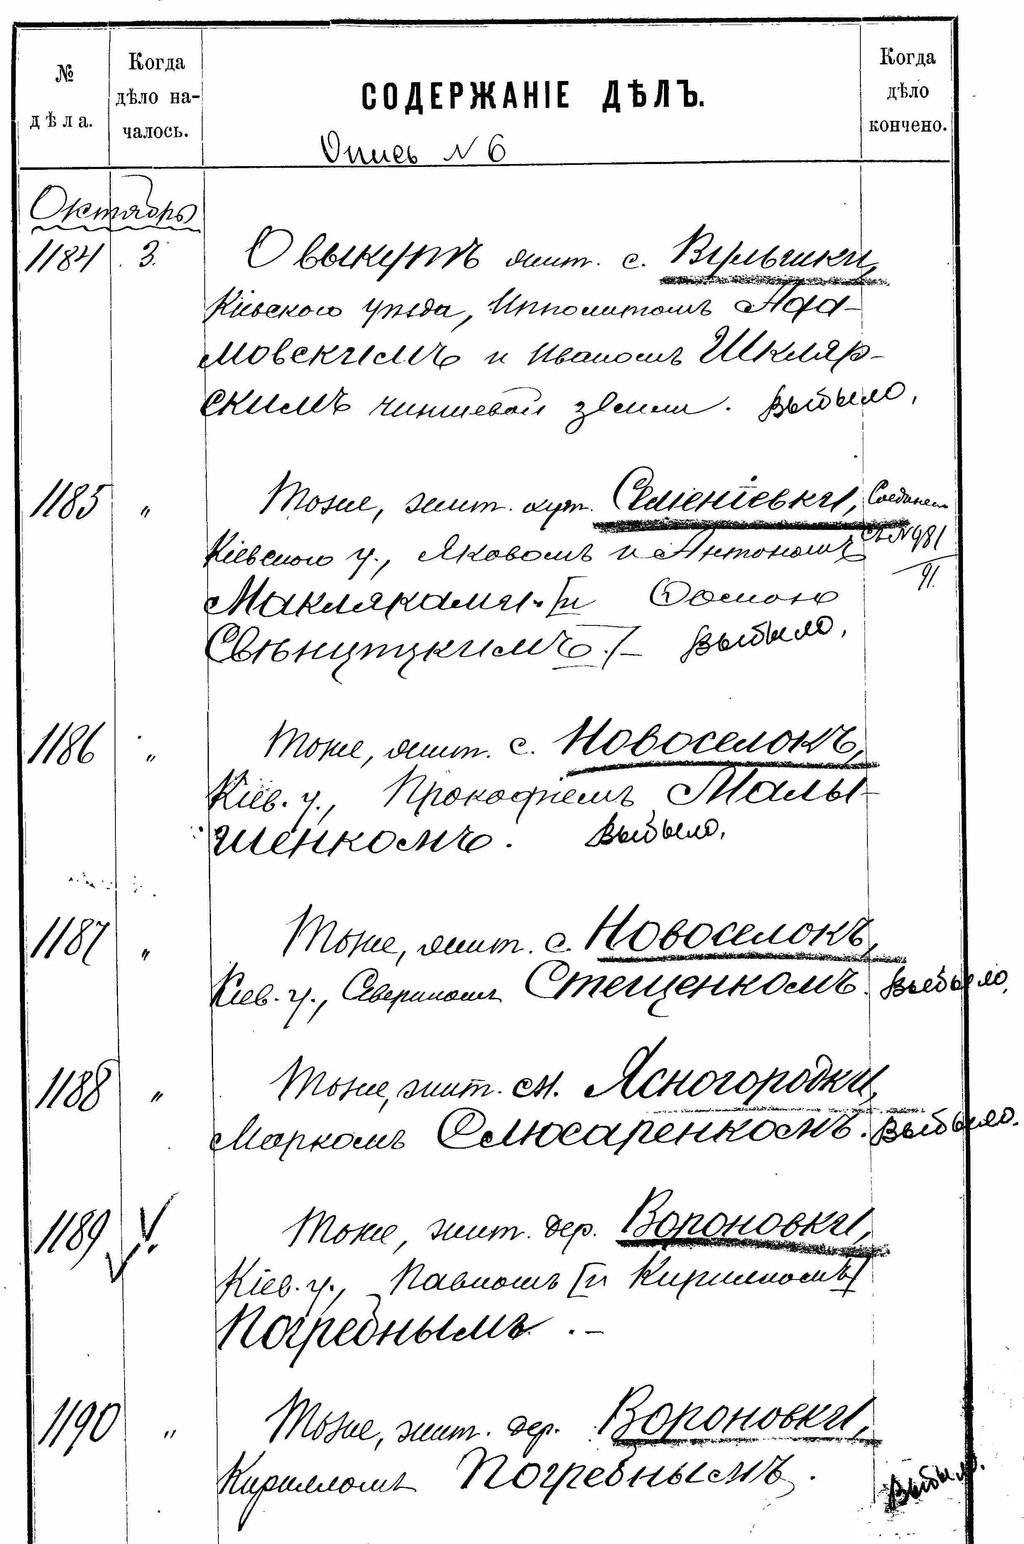 №
дѣла.
Когда
дѣло на-
чалось.
СОДЕРЖАНІЕ ДѢЛЪ.
Когда
дѣло
кончено.
Опись № 6
Октябрь
1184 3. О выкупѣ жит. с. Вульшки,
Кіевского уѣзда, Ипполитомъ Ада-
мовскимъ и Иваномъ Шкляр-
скимъ чиншевой земли. Выбыло,
1185 „ Тоже, жит. хут. Семеніевки, Соединен
Кіевского у., Яковомъ и Антономъ съ № 981/91
Макляками [и Фомою
Свѣнцицкимъ]. Выбыло,
1186 „ Тоже, жит. с. Новоселокъ,
Кіев. у., Прокофіемъ Малы-
шенкомъ. Выбыло,
1187 „ Тоже, жит. с. Новоселокъ,
Кіев. у., Севериномъ Стещенкомъ. Выбыло,
1188 „ Тоже, жит. м. Ясногородки,
Маркомъ Слюсаренкомъ. Выбыло.
1189 „ Тоже, жит. дер. Вороновки,
Кіев. у., Павломъ [и Кирилломъ]
Погребнымъ. –
1190 „ Тоже, жит. дер. Вороновки,
Кирилломъ Погребнымъ. Выбыло.